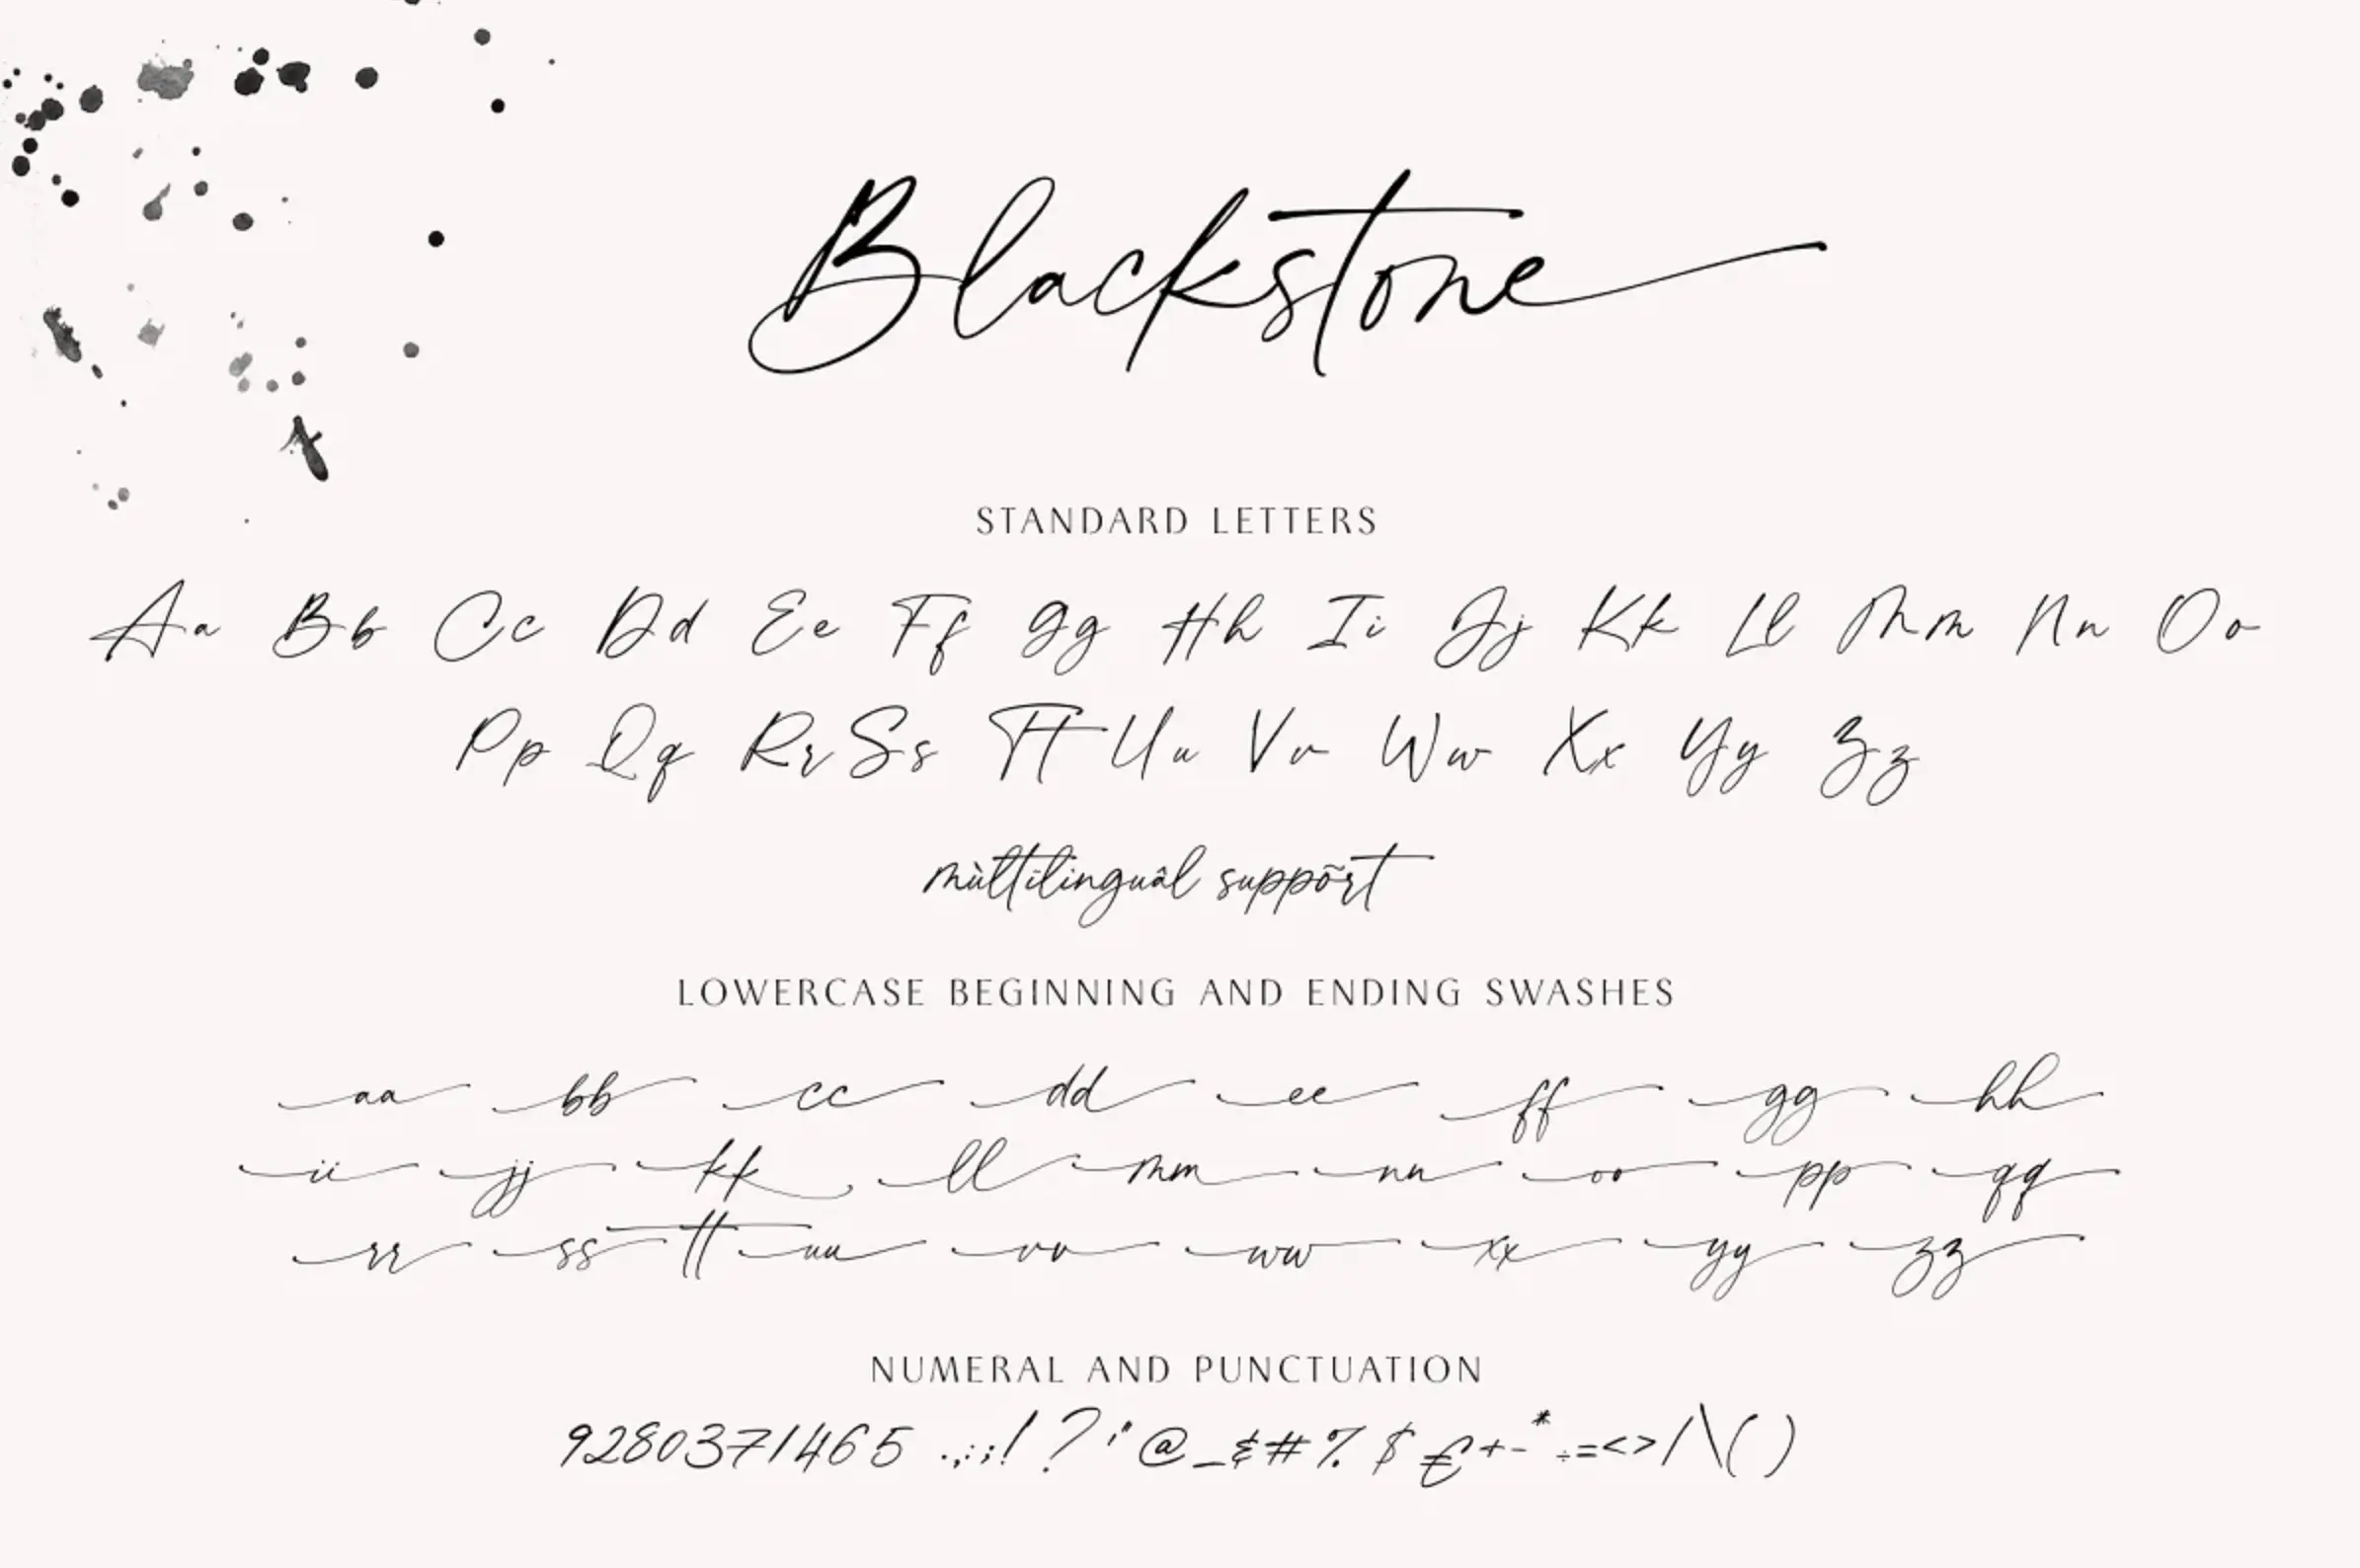 Blackstone
STANDARD LETTERS
Aa Bb Cc Dd Ee Ff Gg Hh Ii Jj Kk Ll Mm Nn Oo
Pp Qq Rr Ss Tt Uu Vv Ww Xx Yy Zz
mùltilinguâl suppõrt
LOWERCASE BEGINNING AND ENDING SWASHES
aa bb cc dd ee ff gg hh
ii jj kk ll mm nn oo pp qq
rr ss tt uu vv ww xx yy zz
NUMERAL AND PUNCTUATION
9280371465 .,:;!?'"@_&#%$€+-*÷=<>/\()